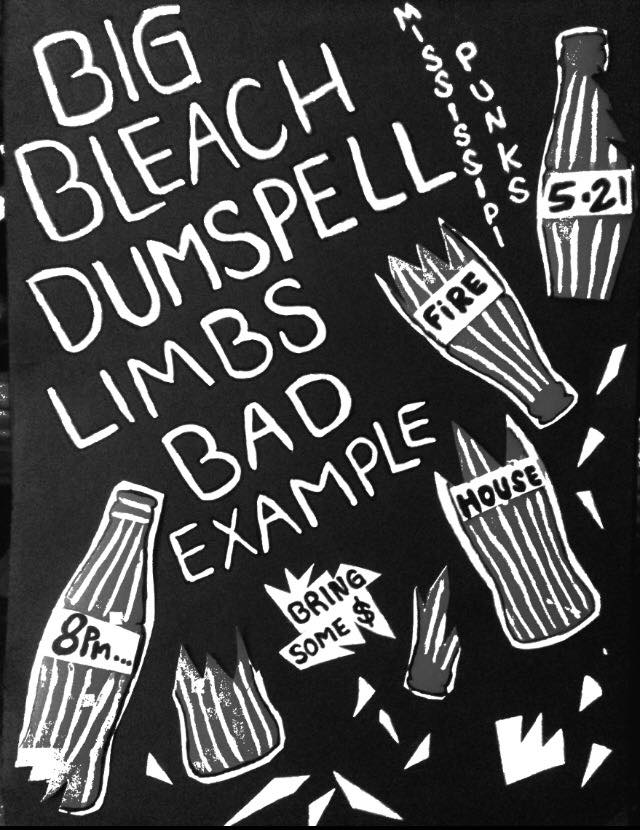 BIG
BLEACH
DUMSPELL
LIMBS
BAD
EXAMPLE
MISSISSIPI
PUNKS
5·21
FiRE
HOUSE
8Pm...
BRING
SOME $